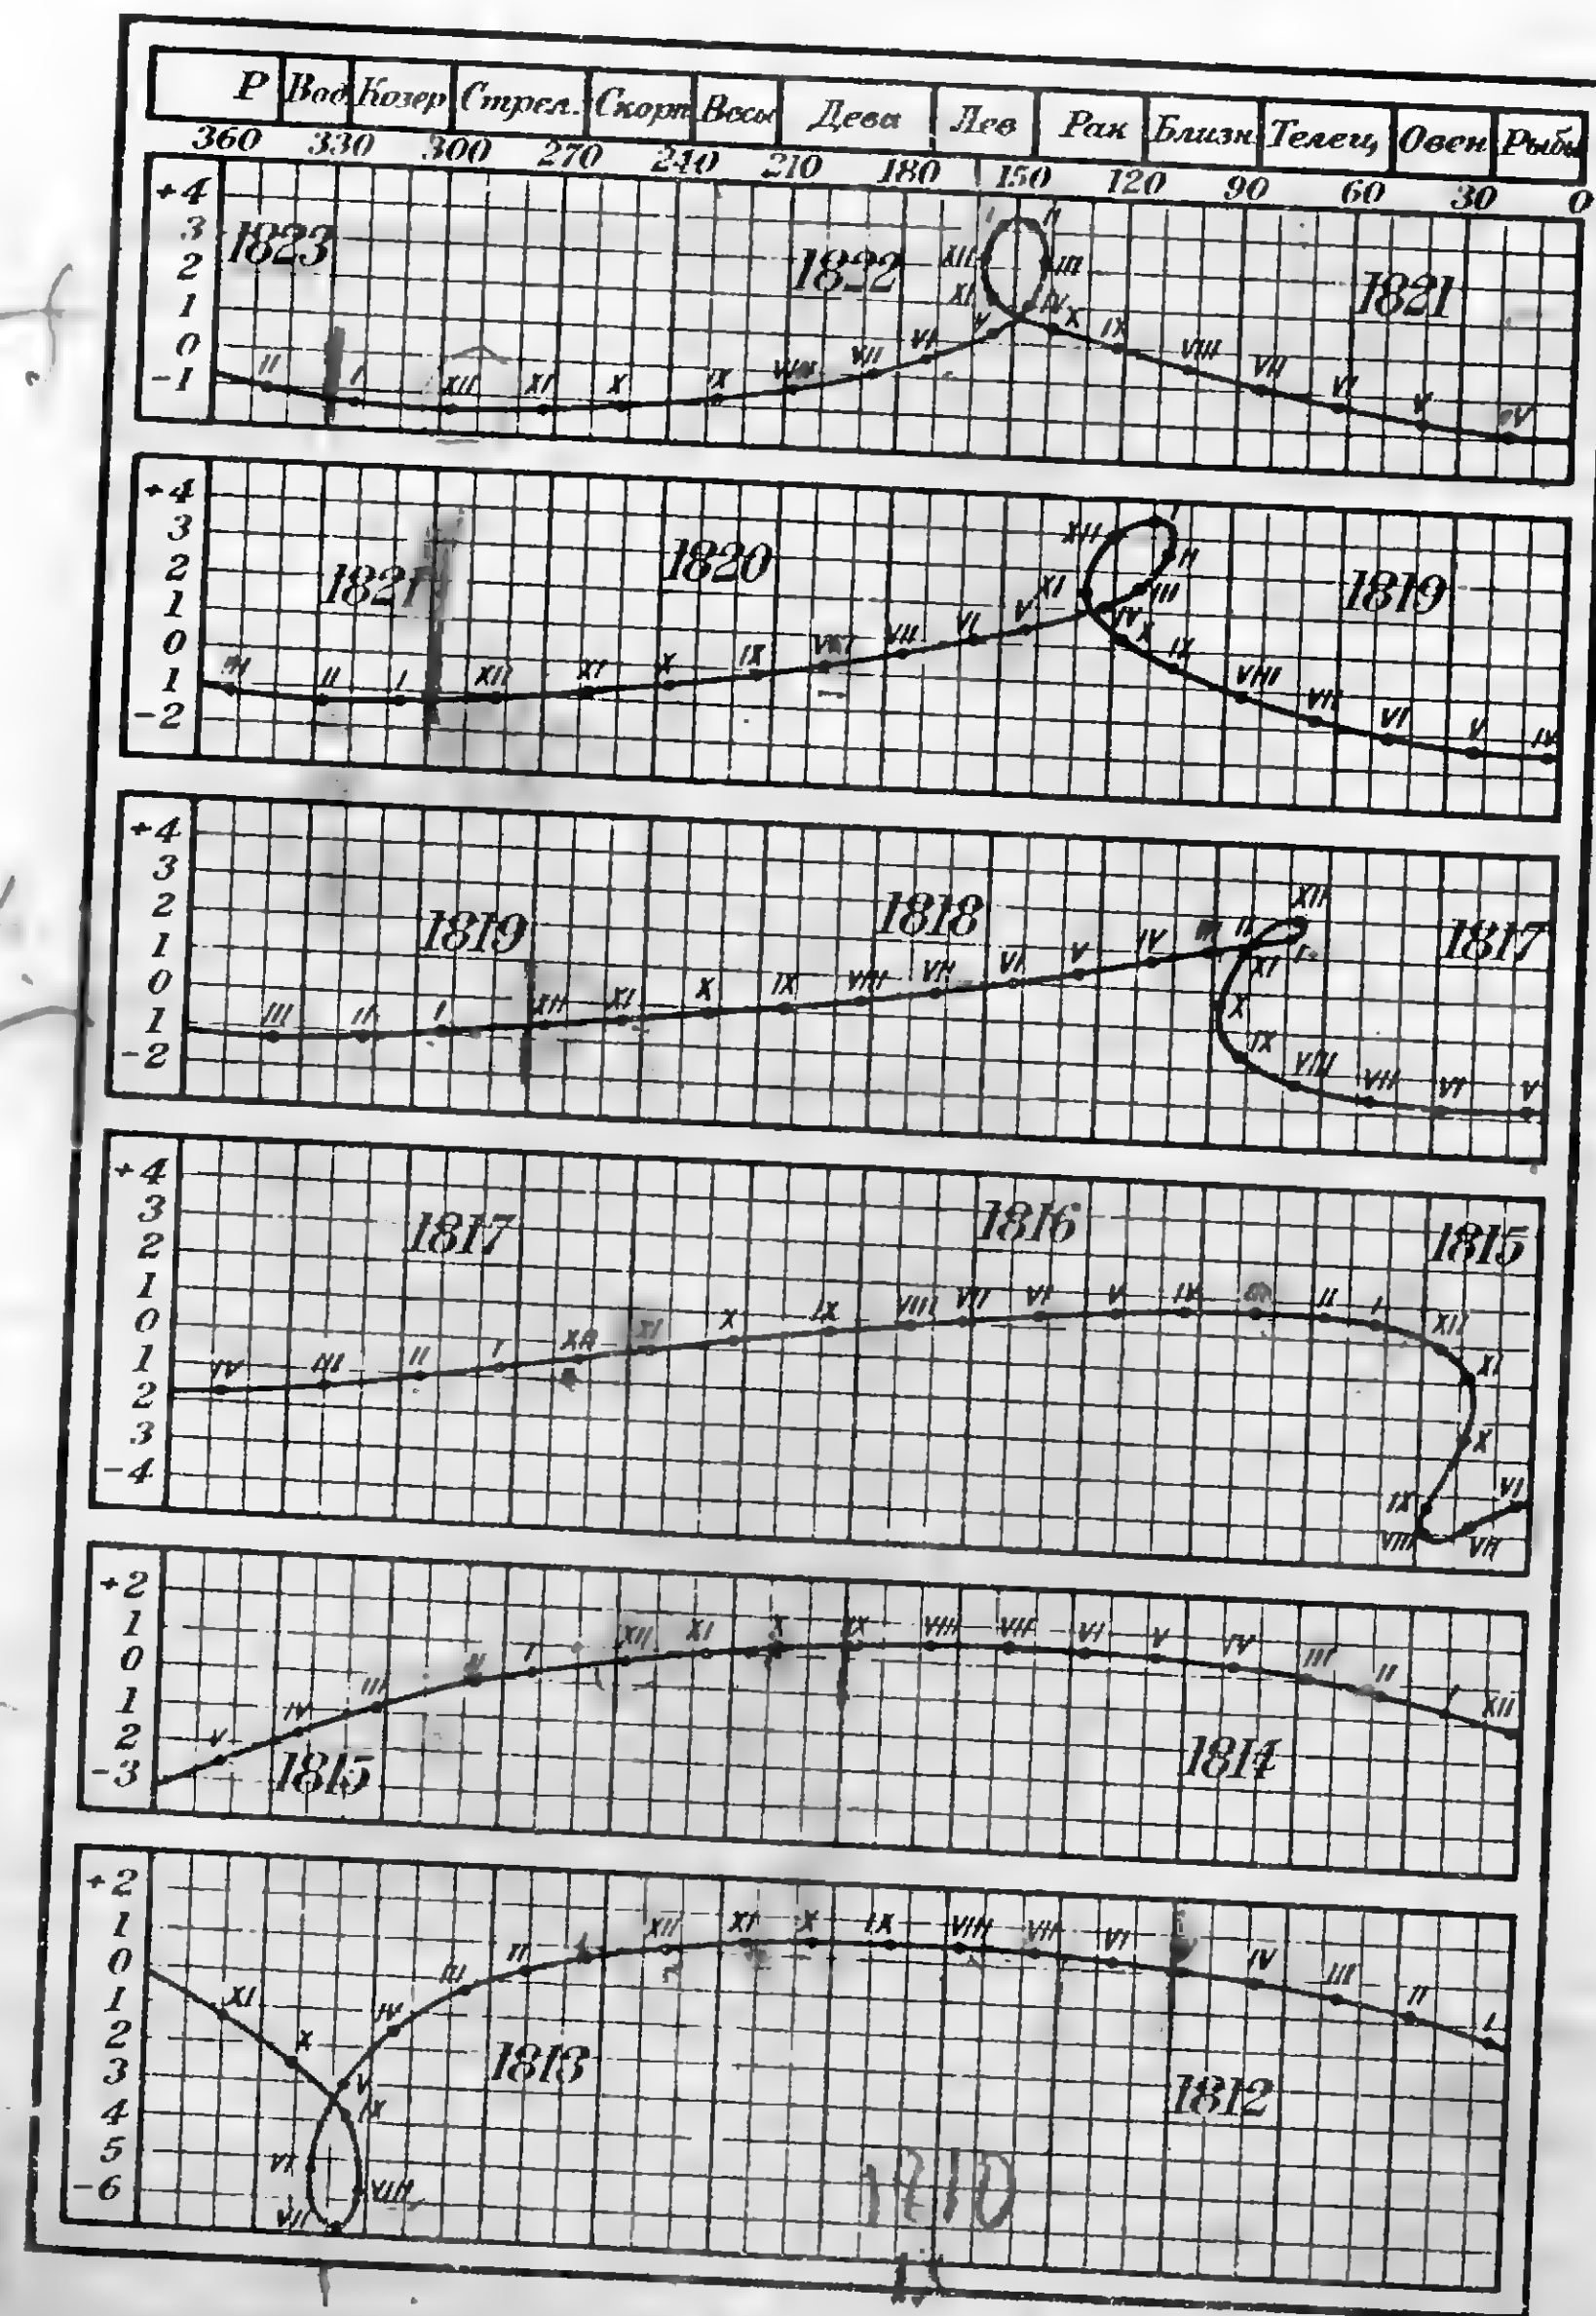 Р Вод Козер Стрел. Скорп Весы Дева Лев Рак Близн Телец Овен Рыбы
360 330 300 270 240 210 180 150 120 90 60 30 0
+4
3
2
1
0
-1
1823 1822 1821
I II
XII III
XI IV
II I XII XI X IX VIII VII VI V X IX VIII VII VI V IV
+4
3
2
1
0
1
-2
1821 1820 1819
XII I
II
XI III
III II I XII XI X IX VIII VII VI V IV X IX VIII VII VI V IV
+4
3
2
1
0
1
-2
1819 1818 1817
XII
III II I XII XI X IX VIII VII VI V IV III II I
XI
X
IX VIII VII VI V
+4
3
2
1
0
1
2
3
-4
1817 1816 1815
IV III II I XII XI X IX VIII VII VI V IV III II I XII
XI
X
IX VI
VIII VII
+2
1
0
1
2
-3
V IV III II I XII XI X IX VIII VII VI V IV III II I XII
1815 1814
+2
1
0
1
2
3
4
5
-6
XI X IV III II I XII XI X IX VIII VII VI IV III II I
V
IX
VI VIII
VII
1813 1812